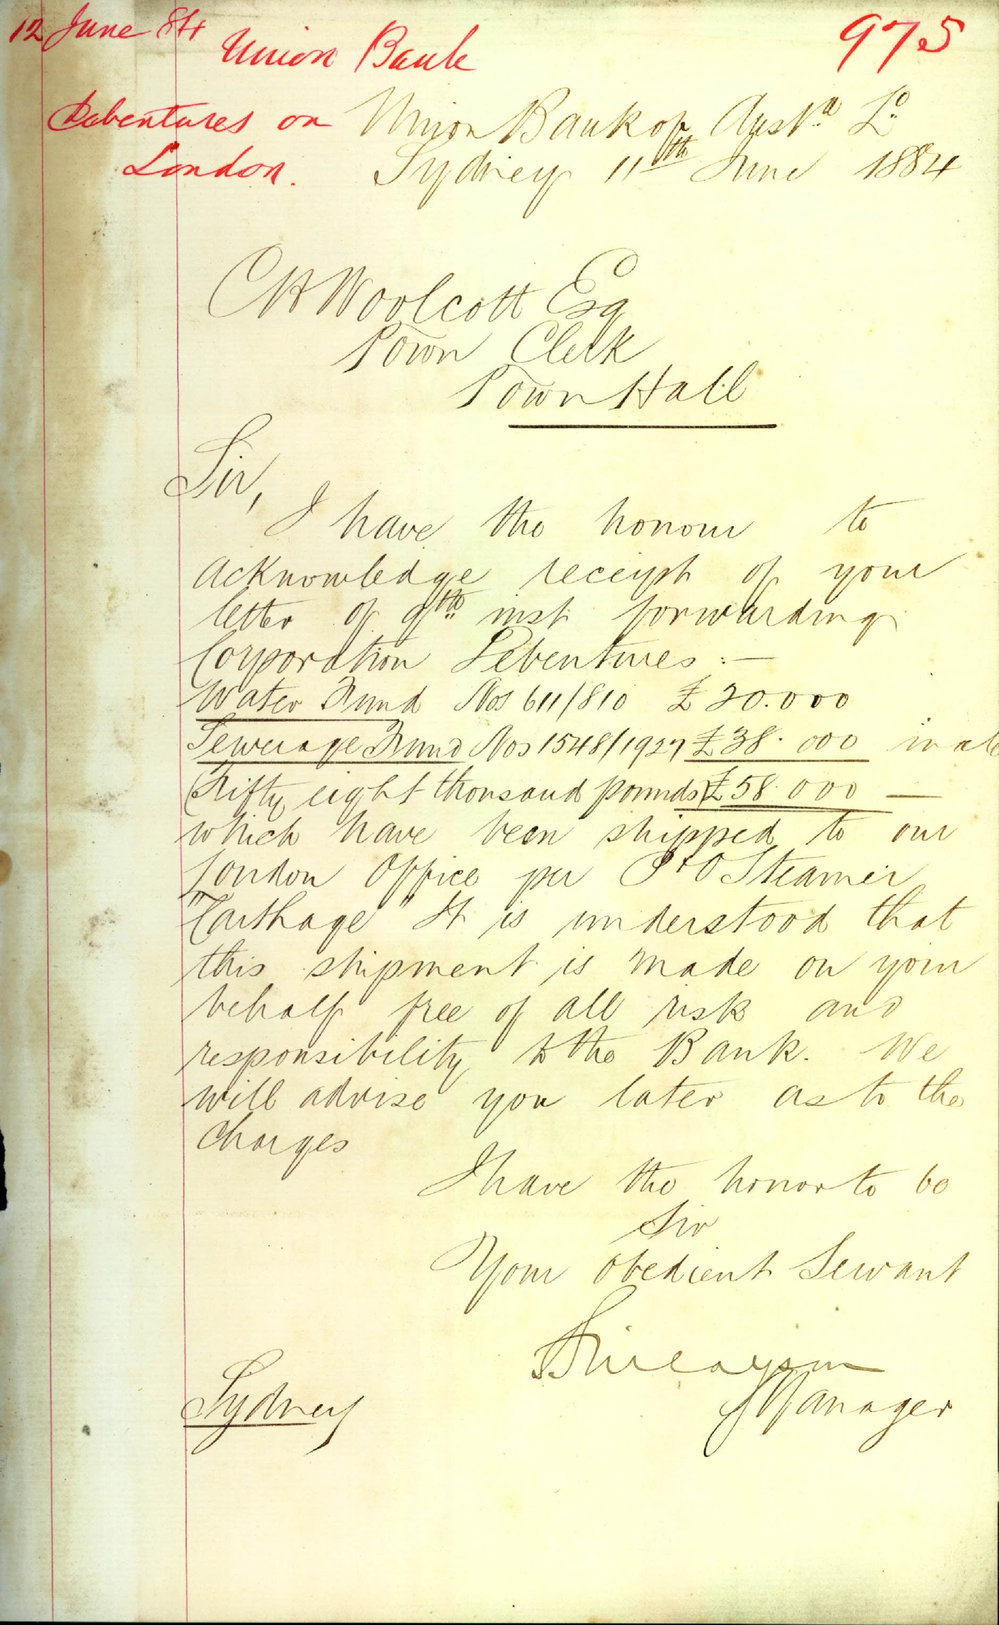 12 June 84
Union Bank
975
Debentures on
London.
Union Bank of Aust.a Ld.
Sydney 11th June 1884
C H Woolcott Esq
Town Clerk
Town Hall
Sir,
I have the honour to
acknowledge receipt of your
letter of 9th inst forwarding
Corporation Debentures :—
Water Fund Nos 611/810 £20.000
Sewerage Fund Nos 1548/1927 £38.000 in all
(Fifty eight thousand pounds) £58.000 —
which have been shipped to our
London Office per P & O Steamer
"Carthage" It is understood that
this shipment is made on your
behalf free of all risk and
responsibility to the Bank. We
will advise you later as to the
Charges
I have the honor to be
Sir
Your obedient Servant
Manager
Sydney